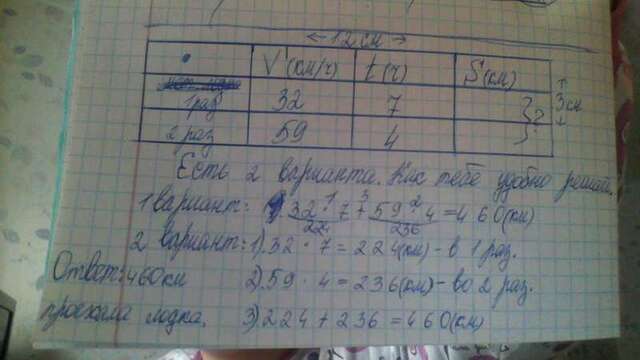 ←12 см→
V (км/ч) t (ч) S (км)
1 раз 32 7
2 раз 59 4
} ?
3 см
Есть 2 варианта. Как тебе удобно решай.
1 вариант: 32 · 7 + 59 · 4 = 460 (км)
1 3 2
224 236
2 вариант: 1). 32 · 7 = 224 (км) - в 1 раз.
Ответ: 460 км 2). 59 · 4 = 236 (км) - во 2 раз.
проехала лодка. 3) 224 + 236 = 460 (км)